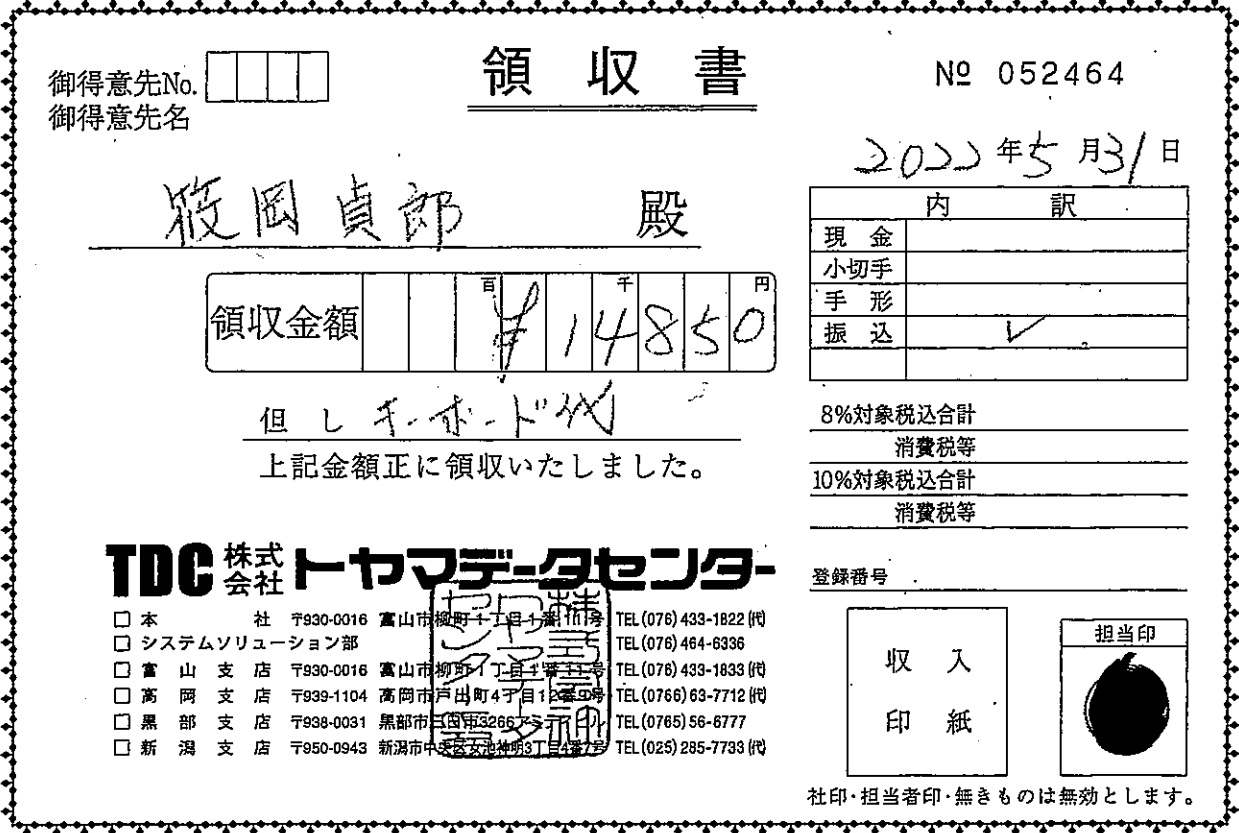 領収書
№ 052464
御得意先No.
御得意先名
2022年5月31日
筱岡貞郎 殿
内訳
現金
小切手
手形
振込 ✓
領収金額 百 千 円 ¥14850
但し キーボード代
上記金額正に領収いたしました。
8%対象税込合計
消費税等
10%対象税込合計
消費税等
登録番号
TDC 株式会社 トヤマデータセンター
□本社 〒930-0016 富山市柳町1丁目1番11号 TEL(076)433-1822(代)
□システムソリューション部 TEL(076)464-6336
□富山支店 〒930-0016 富山市柳町1丁目1番11号 TEL(076)433-1833(代)
□高岡支店 〒939-1104 高岡市戸出町4丁目12番9号 TEL(0766)63-7712(代)
□黒部支店 〒938-0031 黒部市三日市3266 TEL(0765)56-6777
□新潟支店 〒950-0943 新潟市中央区女池神明3丁目4番7号 TEL(025)285-7733(代)
収入
印紙
担当印
社印・担当者印・無きものは無効とします。